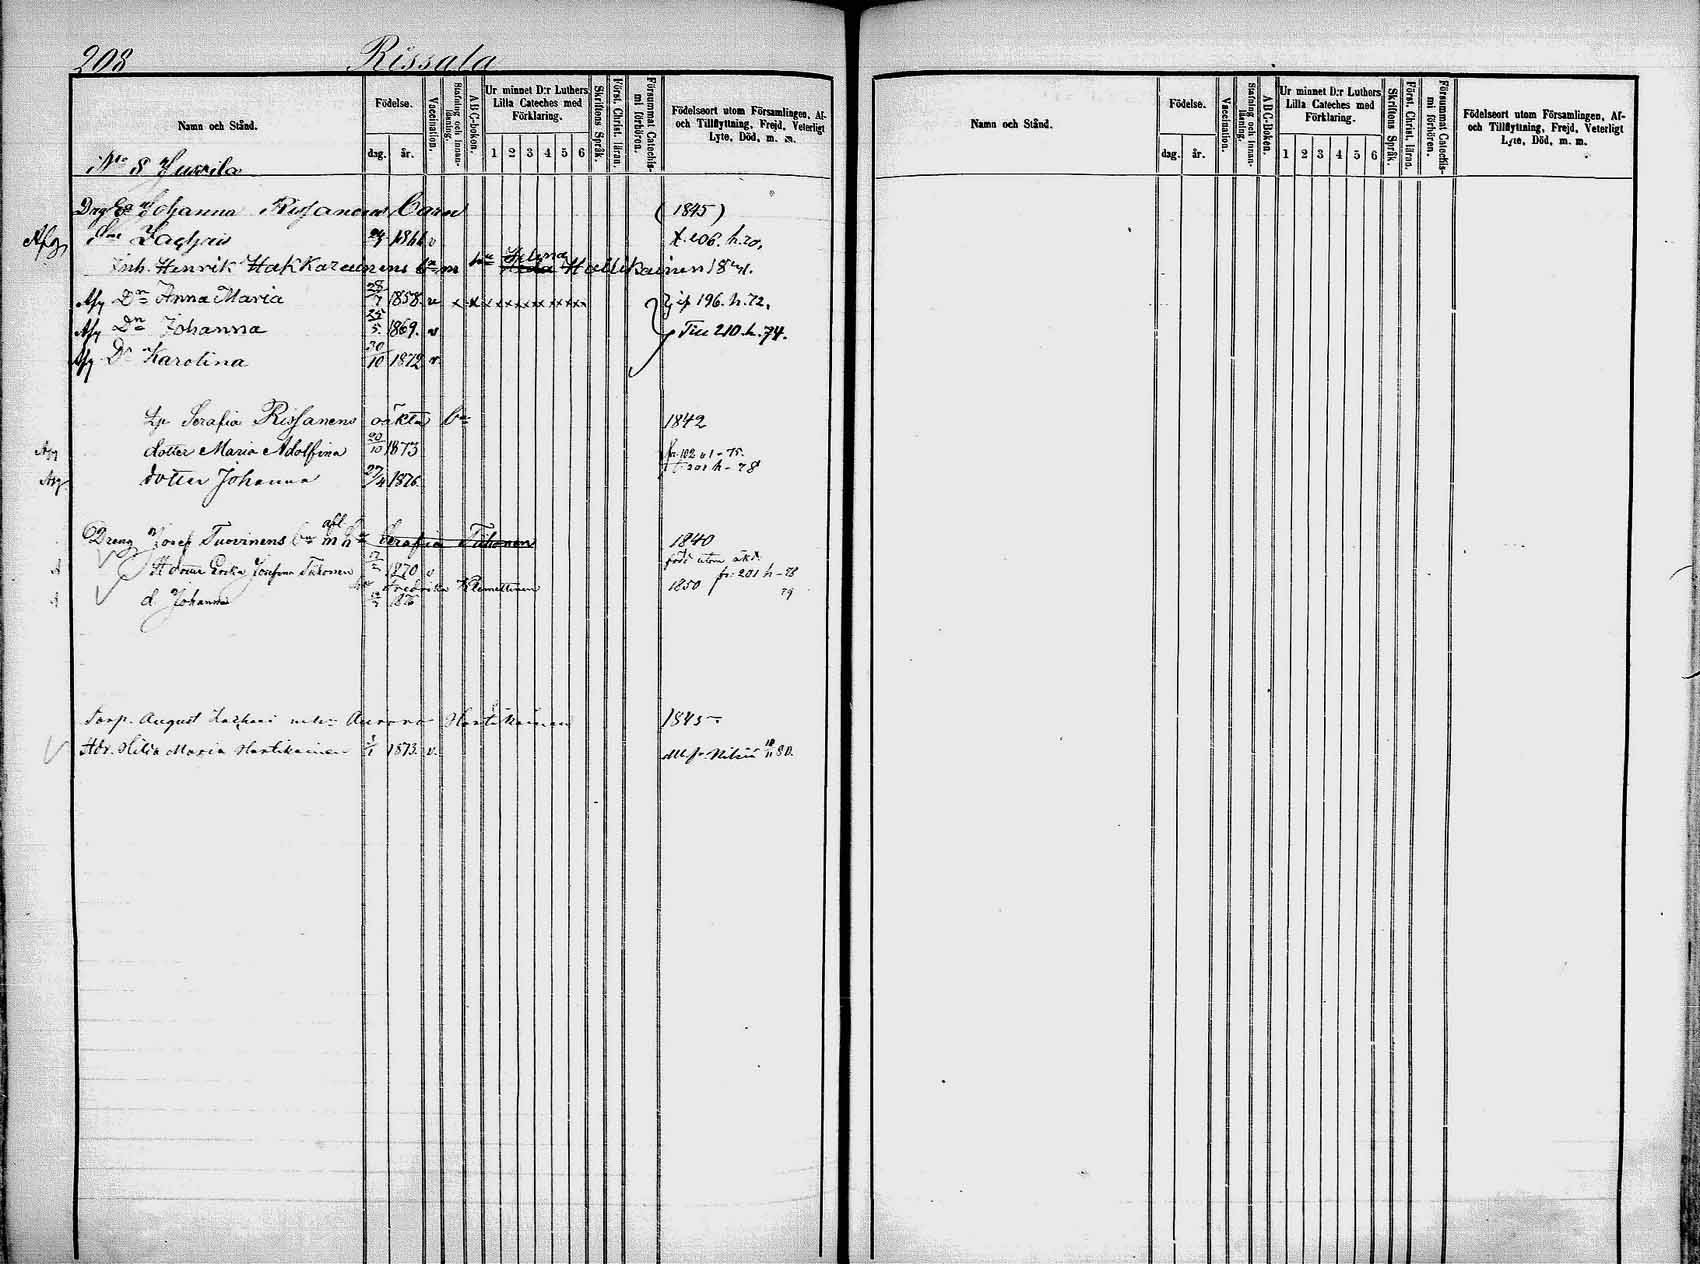 208 Rissala
Namn och Stånd.
Födelse.
dag. år.
Vaccination.
Stafning och Innanläsning.
A B C-boken.
Ur minnet D:r Luthers Lilla Cateches med Förklaring.
1 2 3 4 5 6
Skriftens Språk.
Först. Christ. läran.
Försummat Catechismi förhören.
Födelseort utom Församlingen, Af- och Tillflyttning, Frejd, Veterligt Lyte, Död, m. m.
No 8 Juurila
Johanna Rissanens barn (1845)
Afg Zachris 1866 v t. 206. h. 70.
Inh. Henrik Hakkarainens bn m hu Helena Hallikainen
Afg Dn Anna Maria 28/7 1858 v x x x x x x x x x 196. h. 72.
Afg Dn Johanna 25/5 1869. v Till 210. h. 74.
Afg Dn Karolina 30/10 1872 v
Serafia Rissanens oäkta bn 1842
Afg dotter Maria Adolfina 20/10 1873 fr. 102 - 75.
t. 201 h - 78
Afg dotter Johanna 27/4 1876.
Dreng Josef Tuovinens bn m afl. hu Serafia Tiihonen 1840
dotter Josefina Tiihonen 1870 v född utom äkt.
fr. 201 h - 78
hu Fredrika Klemettinen 1850 79
d Johanna 1876
August m hu Aurora Hartikainen 1845
Adr. Hilda Maria Hartikainen 1/1 1873. v. fr. Nilsiä 80.
Namn och Stånd.
Födelse.
dag. år.
Vaccination.
Stafning och Innanläsning.
A B C-boken.
Ur minnet D:r Luthers Lilla Cateches med Förklaring.
1 2 3 4 5 6
Skriftens Språk.
Först. Christ. läran.
Försummat Catechismi förhören.
Födelseort utom Församlingen, Af- och Tillflyttning, Frejd, Veterligt Lyte, Död, m. m.